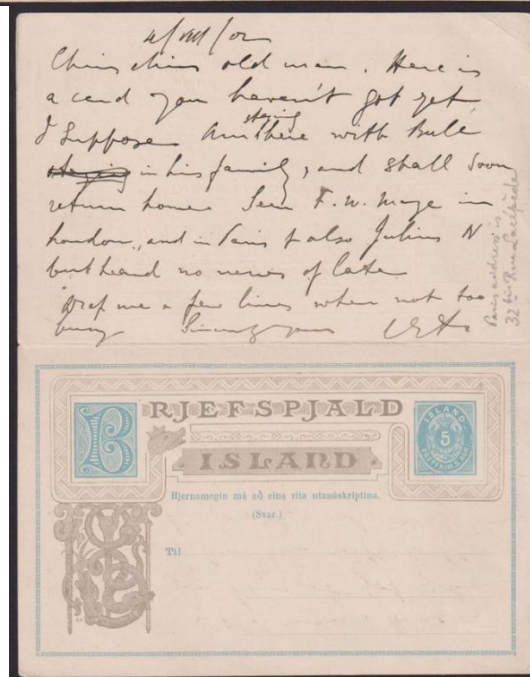 4/VIII/02
Chin chin old man. Here is
a card you haven't got yet
I suppose Am staying there with Bull
staying in his family, and shall soon
return home Seen F. W. in
London, and in Paris & also Julius N
but heard no news of late
me a few lines when not too
busy Sincerely yours
Paris address is
32 bis Rue
BRJEFSPJALD
ISLAND
ISLAND
5
Hjernomegin má að eins rita utanáskriptina.
(Svar.)
Til